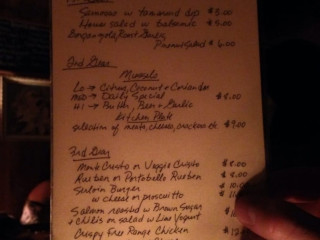 Samosas w/ tamarind dip $5.00
House salad w/ balsamic $5.00
Parmesan Salad $6.00
2nd Gear
Mussels
Lo → Citrus, Coconut & Coriander
MED → Daily Special $8.00
Hi → Butter, Beer & Garlic
Kitchen Plate
selection of meats, cheeses, crackers etc $9.00
3rd Gear
Monte Cristo or Veggie Cristo $8.00
Reuben or Portobello Reuben $8.00
Sirloin Burger $10.00
w/ cheese or prosciutto
Salmon roasted w/ Brown Sugar
+ Chilis on salad w/ Lime Yogurt
Crispy Free Range Chicken